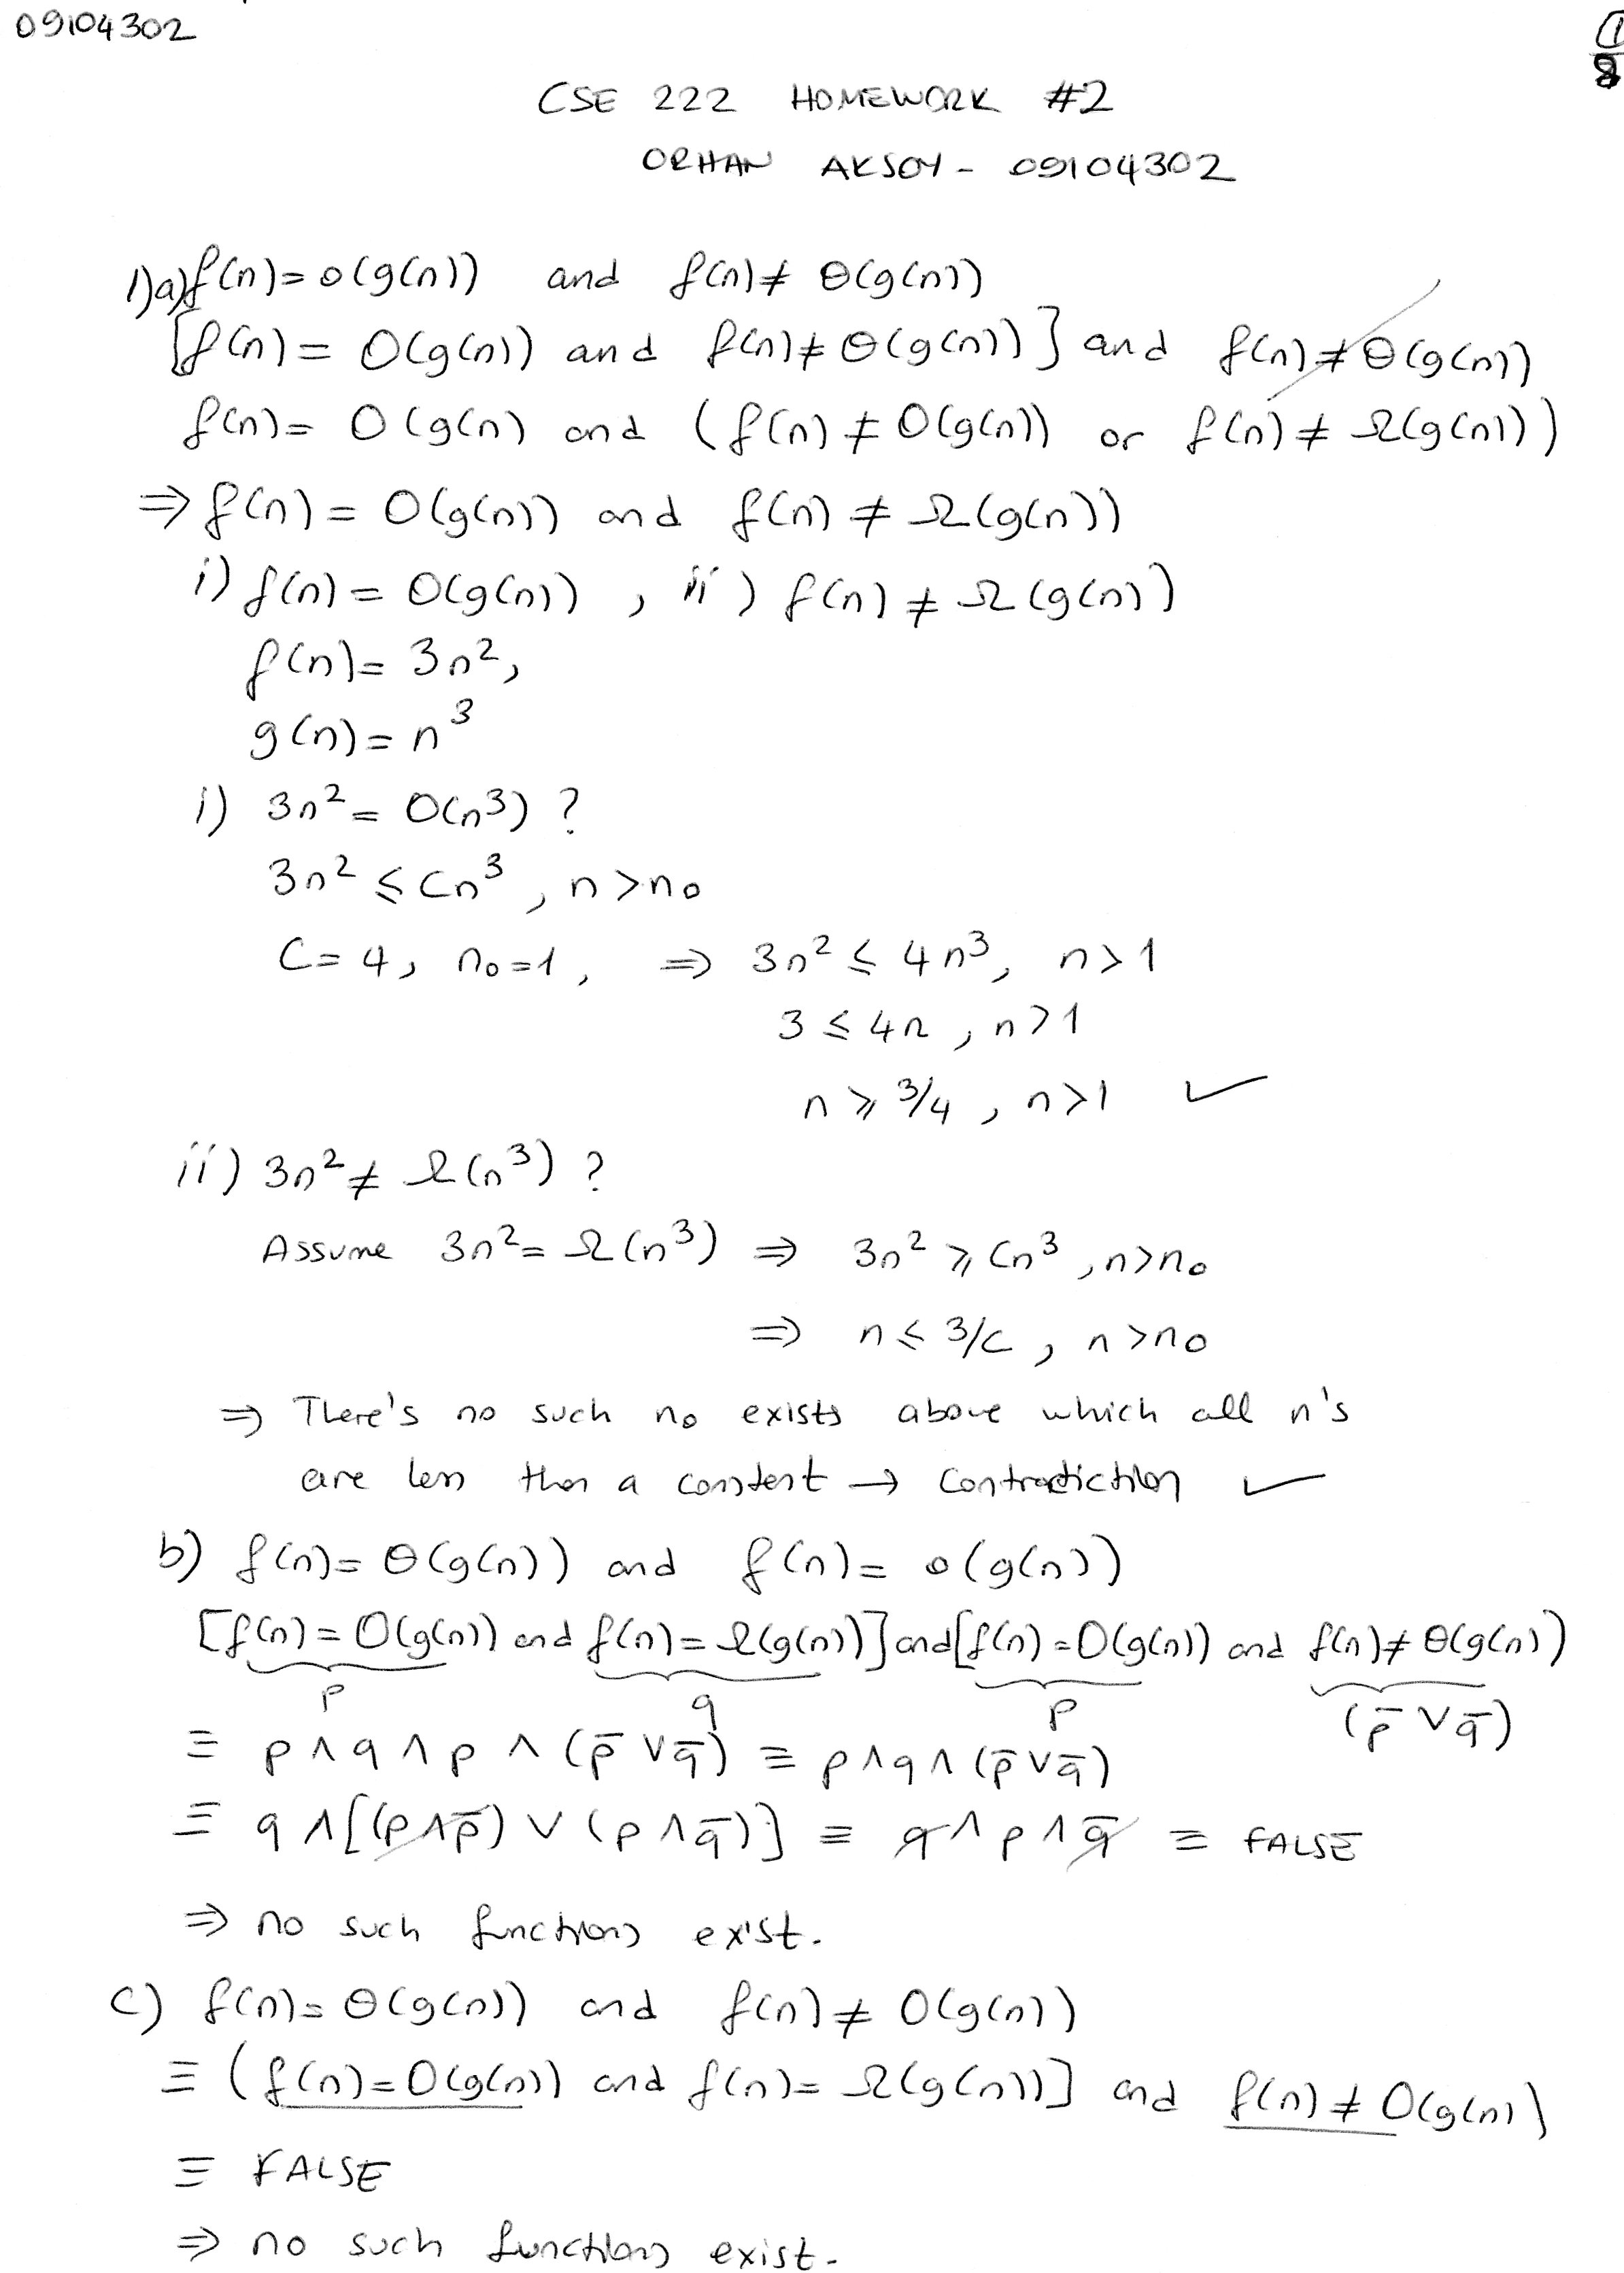 09104302
1/8
CSE 222 HOMEWORK #2
ORHAN AKSOY - 09104302
1)a) f(n)=o(g(n)) and f(n)≠ Θ(g(n))
[f(n)= O(g(n)) and f(n)≠Θ(g(n))] and f(n)≠Θ(g(n))
f(n)= O(g(n) and (f(n)≠O(g(n)) or f(n)≠ Ω(g(n)))
⇒ f(n)= O(g(n)) and f(n) ≠ Ω(g(n))
i) f(n)= O(g(n)) , ii) f(n) ≠ Ω(g(n))
f(n)= 3n²,
g(n)= n³
i) 3n² = O(n³) ?
3n² ≤ Cn³ , n>n₀
C=4, n₀=1, ⇒ 3n² ≤ 4n³, n>1
3 ≤ 4n , n>1
n ≥ 3/4 , n>1 ✓
ii) 3n² ≠ Ω(n³) ?
Assume 3n²= Ω(n³) ⇒ 3n² ≥ Cn³ , n>n₀
⇒ n ≤ 3/C , n>n₀
⇒ There's no such n₀ exists above which all n's
are less than a constant → contradiction ✓
b) f(n)= Θ(g(n)) and f(n)= o(g(n))
[f(n)=O(g(n)) and f(n)=Ω(g(n))] and [f(n)=O(g(n)) and f(n)≠Θ(g(n))
p q p (p̄ ∨ q̄)
≡ p∧q∧p∧(p̄∨q̄) ≡ p∧q∧(p̄∨q̄)
≡ q∧[(p∧p̄)∨(p∧q̄)] ≡ q∧p∧q̄ ≡ FALSE
⇒ no such functions exist.
c) f(n)= Θ(g(n)) and f(n)≠ O(g(n))
≡ (f(n)=O(g(n)) and f(n)= Ω(g(n))] and f(n)≠O(g(n))
≡ FALSE
⇒ no such functions exist.